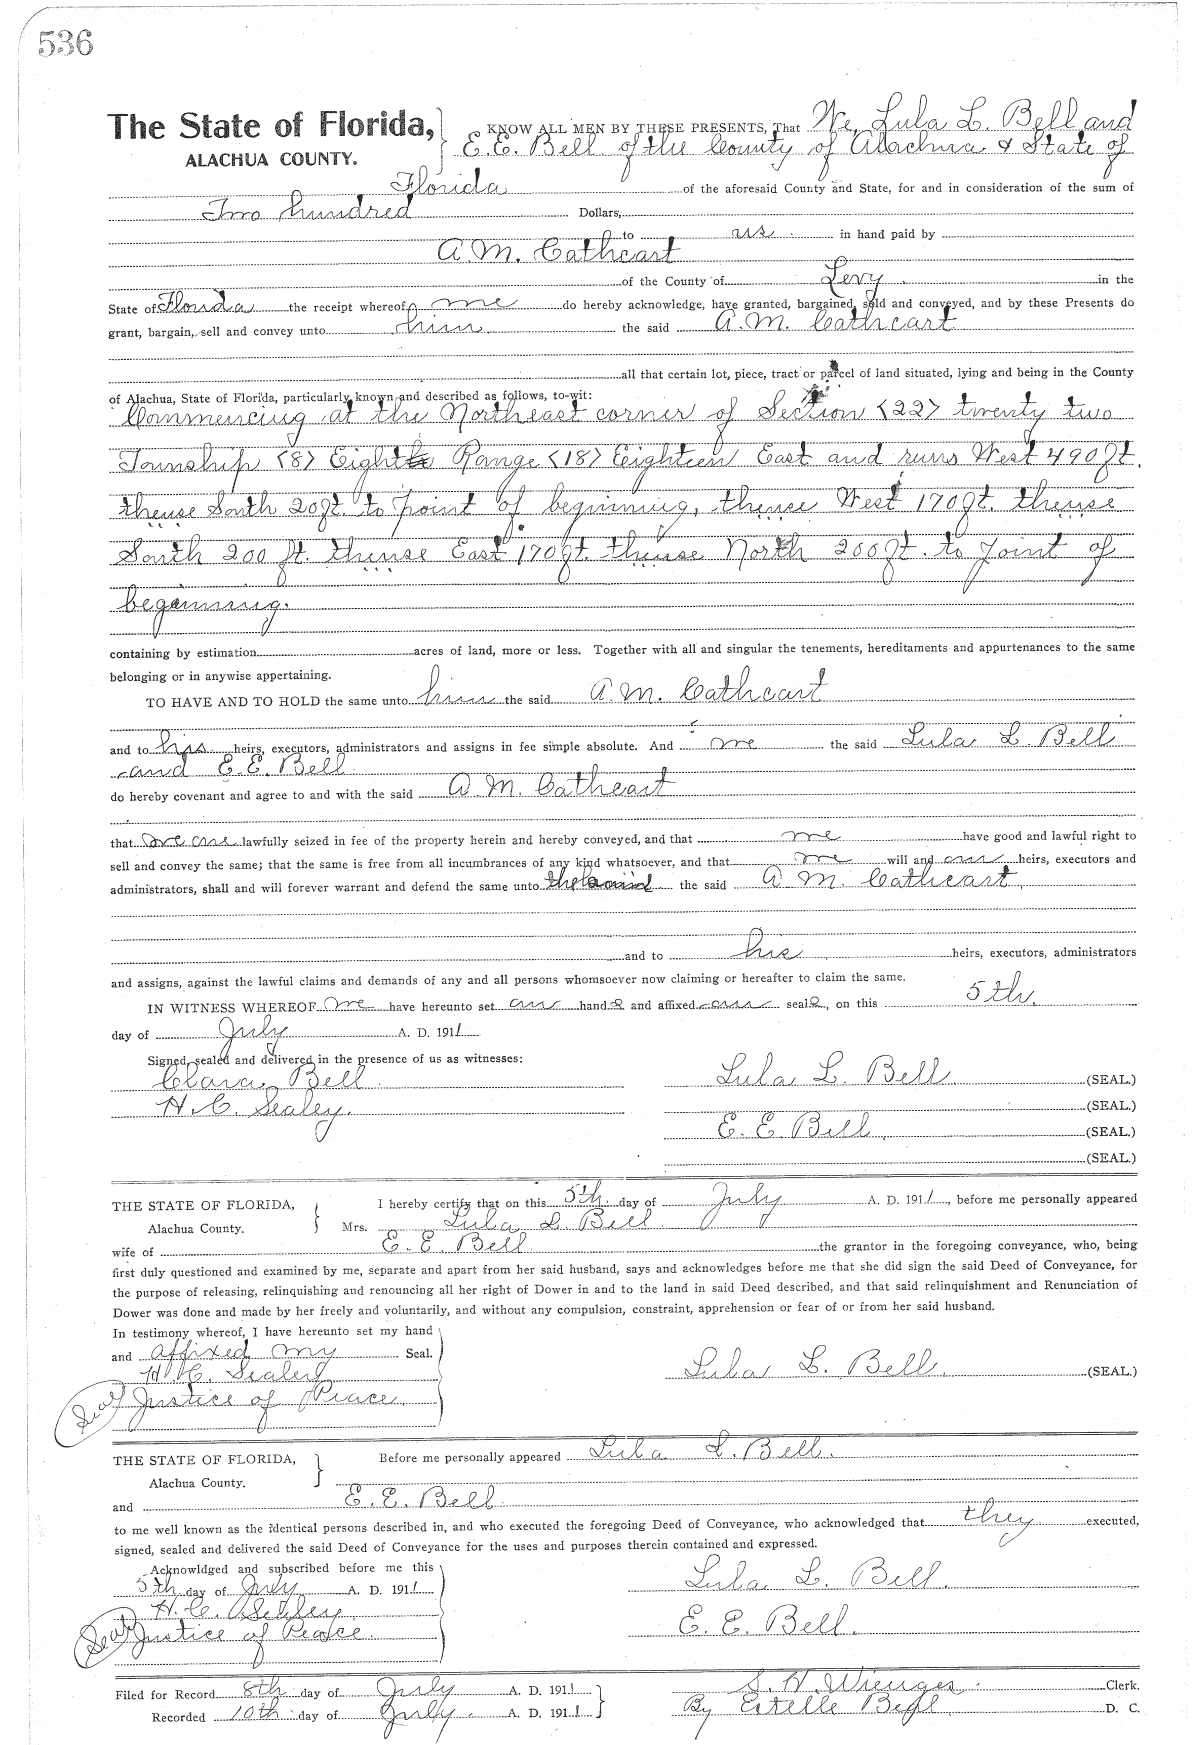 536
The State of Florida, KNOW ALL MEN BY THESE PRESENTS, That We, Lula L. Bell and
ALACHUA COUNTY. E. E. Bell of the County of Alachua & State of
Florida of the aforesaid County and State, for and in consideration of the sum of
Two hundred Dollars,
to us in hand paid by
A. M. Cathcart
of the County of Levy in the
State of Florida the receipt whereof we do hereby acknowledge, have granted, bargained, sold and conveyed, and by these Presents do
grant, bargain, sell and convey unto him the said A. M. Cathcart
all that certain lot, piece, tract or parcel of land situated, lying and being in the County
of Alachua, State of Florida, particularly known and described as follows, to-wit:
Commencing at the Northeast corner of Section <22> twenty two
Township <8> Eight Range <18> Eighteen East and runs West 490 ft.
thense South 20 ft. to point of beginning, thense West 170 ft. thense
South 200 ft. thense East 170 ft. thense North 200 ft. to point of
beginning.
containing by estimation acres of land, more or less. Together with all and singular the tenements, hereditaments and appurtenances to the same
belonging or in anywise appertaining.
TO HAVE AND TO HOLD the same unto him the said A. M. Cathcart
and to his heirs, executors, administrators and assigns in fee simple absolute. And we the said Lula L. Bell
and E. E. Bell
do hereby covenant and agree to and with the said A M. Cathcart
that we are lawfully seized in fee of the property herein and hereby conveyed, and that we have good and lawful right to
sell and convey the same; that the same is free from all incumbrances of any kind whatsoever, and that we will and our heirs, executors and
administrators, shall and will forever warrant and defend the same unto the said A M. Cathcart,
and to his heirs, executors, administrators
and assigns, against the lawful claims and demands of any and all persons whomsoever now claiming or hereafter to claim the same.
IN WITNESS WHEREOF we have hereunto set our hands and affixed our seals, on this 5th.
day of July A. D. 1911
Signed, sealed and delivered in the presence of us as witnesses:
Clara Bell Lula L. Bell (SEAL.)
H. C. Sealey. (SEAL.)
E. E. Bell. (SEAL.)
(SEAL.)
THE STATE OF FLORIDA, I hereby certify that on this 5th. day of July A. D. 1911, before me personally appeared
Alachua County. Mrs. Lula L. Bell
wife of E. E. Bell the grantor in the foregoing conveyance, who, being
first duly questioned and examined by me, separate and apart from her said husband, says and acknowledges before me that she did sign the said Deed of Conveyance, for
the purpose of releasing, relinquishing and renouncing all her right of Dower in and to the land in said Deed described, and that said relinquishment and Renunciation of
Dower was done and made by her freely and voluntarily, and without any compulsion, constraint, apprehension or fear of or from her said husband.
In testimony whereof, I have hereunto set my hand
and affixed my Seal.
H. C. Sealey Lula L. Bell. (SEAL.)
Seal Justice of Peace.
THE STATE OF FLORIDA, Before me personally appeared Lula L. Bell.
Alachua County.
and E. E. Bell.
to me well known as the identical persons described in, and who executed the foregoing Deed of Conveyance, who acknowledged that they executed,
signed, sealed and delivered the said Deed of Conveyance for the uses and purposes therein contained and expressed.
Acknowldged and subscribed before me this
5th day of July A. D. 1911 Lula L. Bell.
H. C. Sealey
Seal Justice of Peace. E. E. Bell.
Filed for Record 8th day of July A. D. 1911 S. H. Wienges. Clerk.
Recorded 10th day of July. A. D. 1911 By Estelle Bell. D. C.